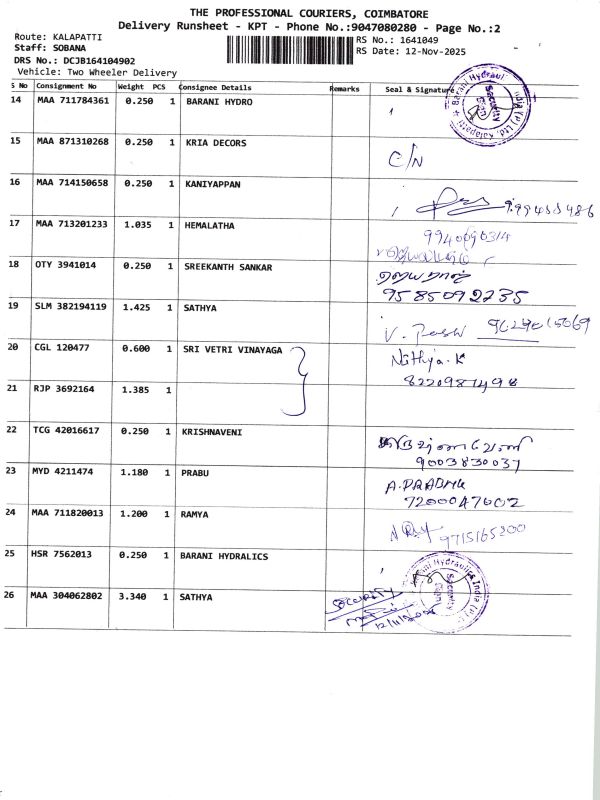 THE PROFESSIONAL COURIERS, COIMBATORE
Delivery Runsheet - KPT - Phone No.:9047080280 - Page No.:2
Route: KALAPATTI
RS No.: 1641049
Staff: SOBANA
RS Date: 12-Nov-2025
DRS No.: DCJB164104902
Vehicle: Two Wheeler Delivery
S No Consignment No Weight PCS Consignee Details Remarks Seal & Signature
14 MAA 711784361 0.250 1 BARANI HYDRO
15 MAA 871310268 0.250 1 KRIA DECORS C/N
16 MAA 714150658 0.250 1 KANIYAPPAN
17 MAA 713201233 1.035 1 HEMALATHA
18 OTY 3941014 0.250 1 SREEKANTH SANKAR
9585092235
19 SLM 382194119 1.425 1 SATHYA
20 CGL 120477 0.600 1 SRI VETRI VINAYAGA Nithya.K
8220981498
21 RJP 3692164 1.385 1
22 TCG 42016617 0.250 1 KRISHNAVENI
9003830037
23 MYD 4211474 1.180 1 PRABU A.PRABHU
7200047002
24 MAA 711820013 1.200 1 RAMYA 9715165200
25 HSR 7562013 0.250 1 BARANI HYDRALICS
Barani Hydraulics India (P)
Security
26 MAA 304062802 3.340 1 SATHYA Security
12/11/2025